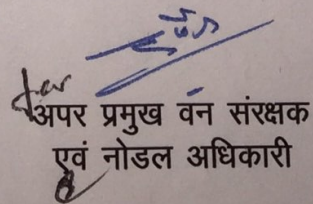 for
अपर प्रमुख वन संरक्षक
एवं नोडल अधिकारी